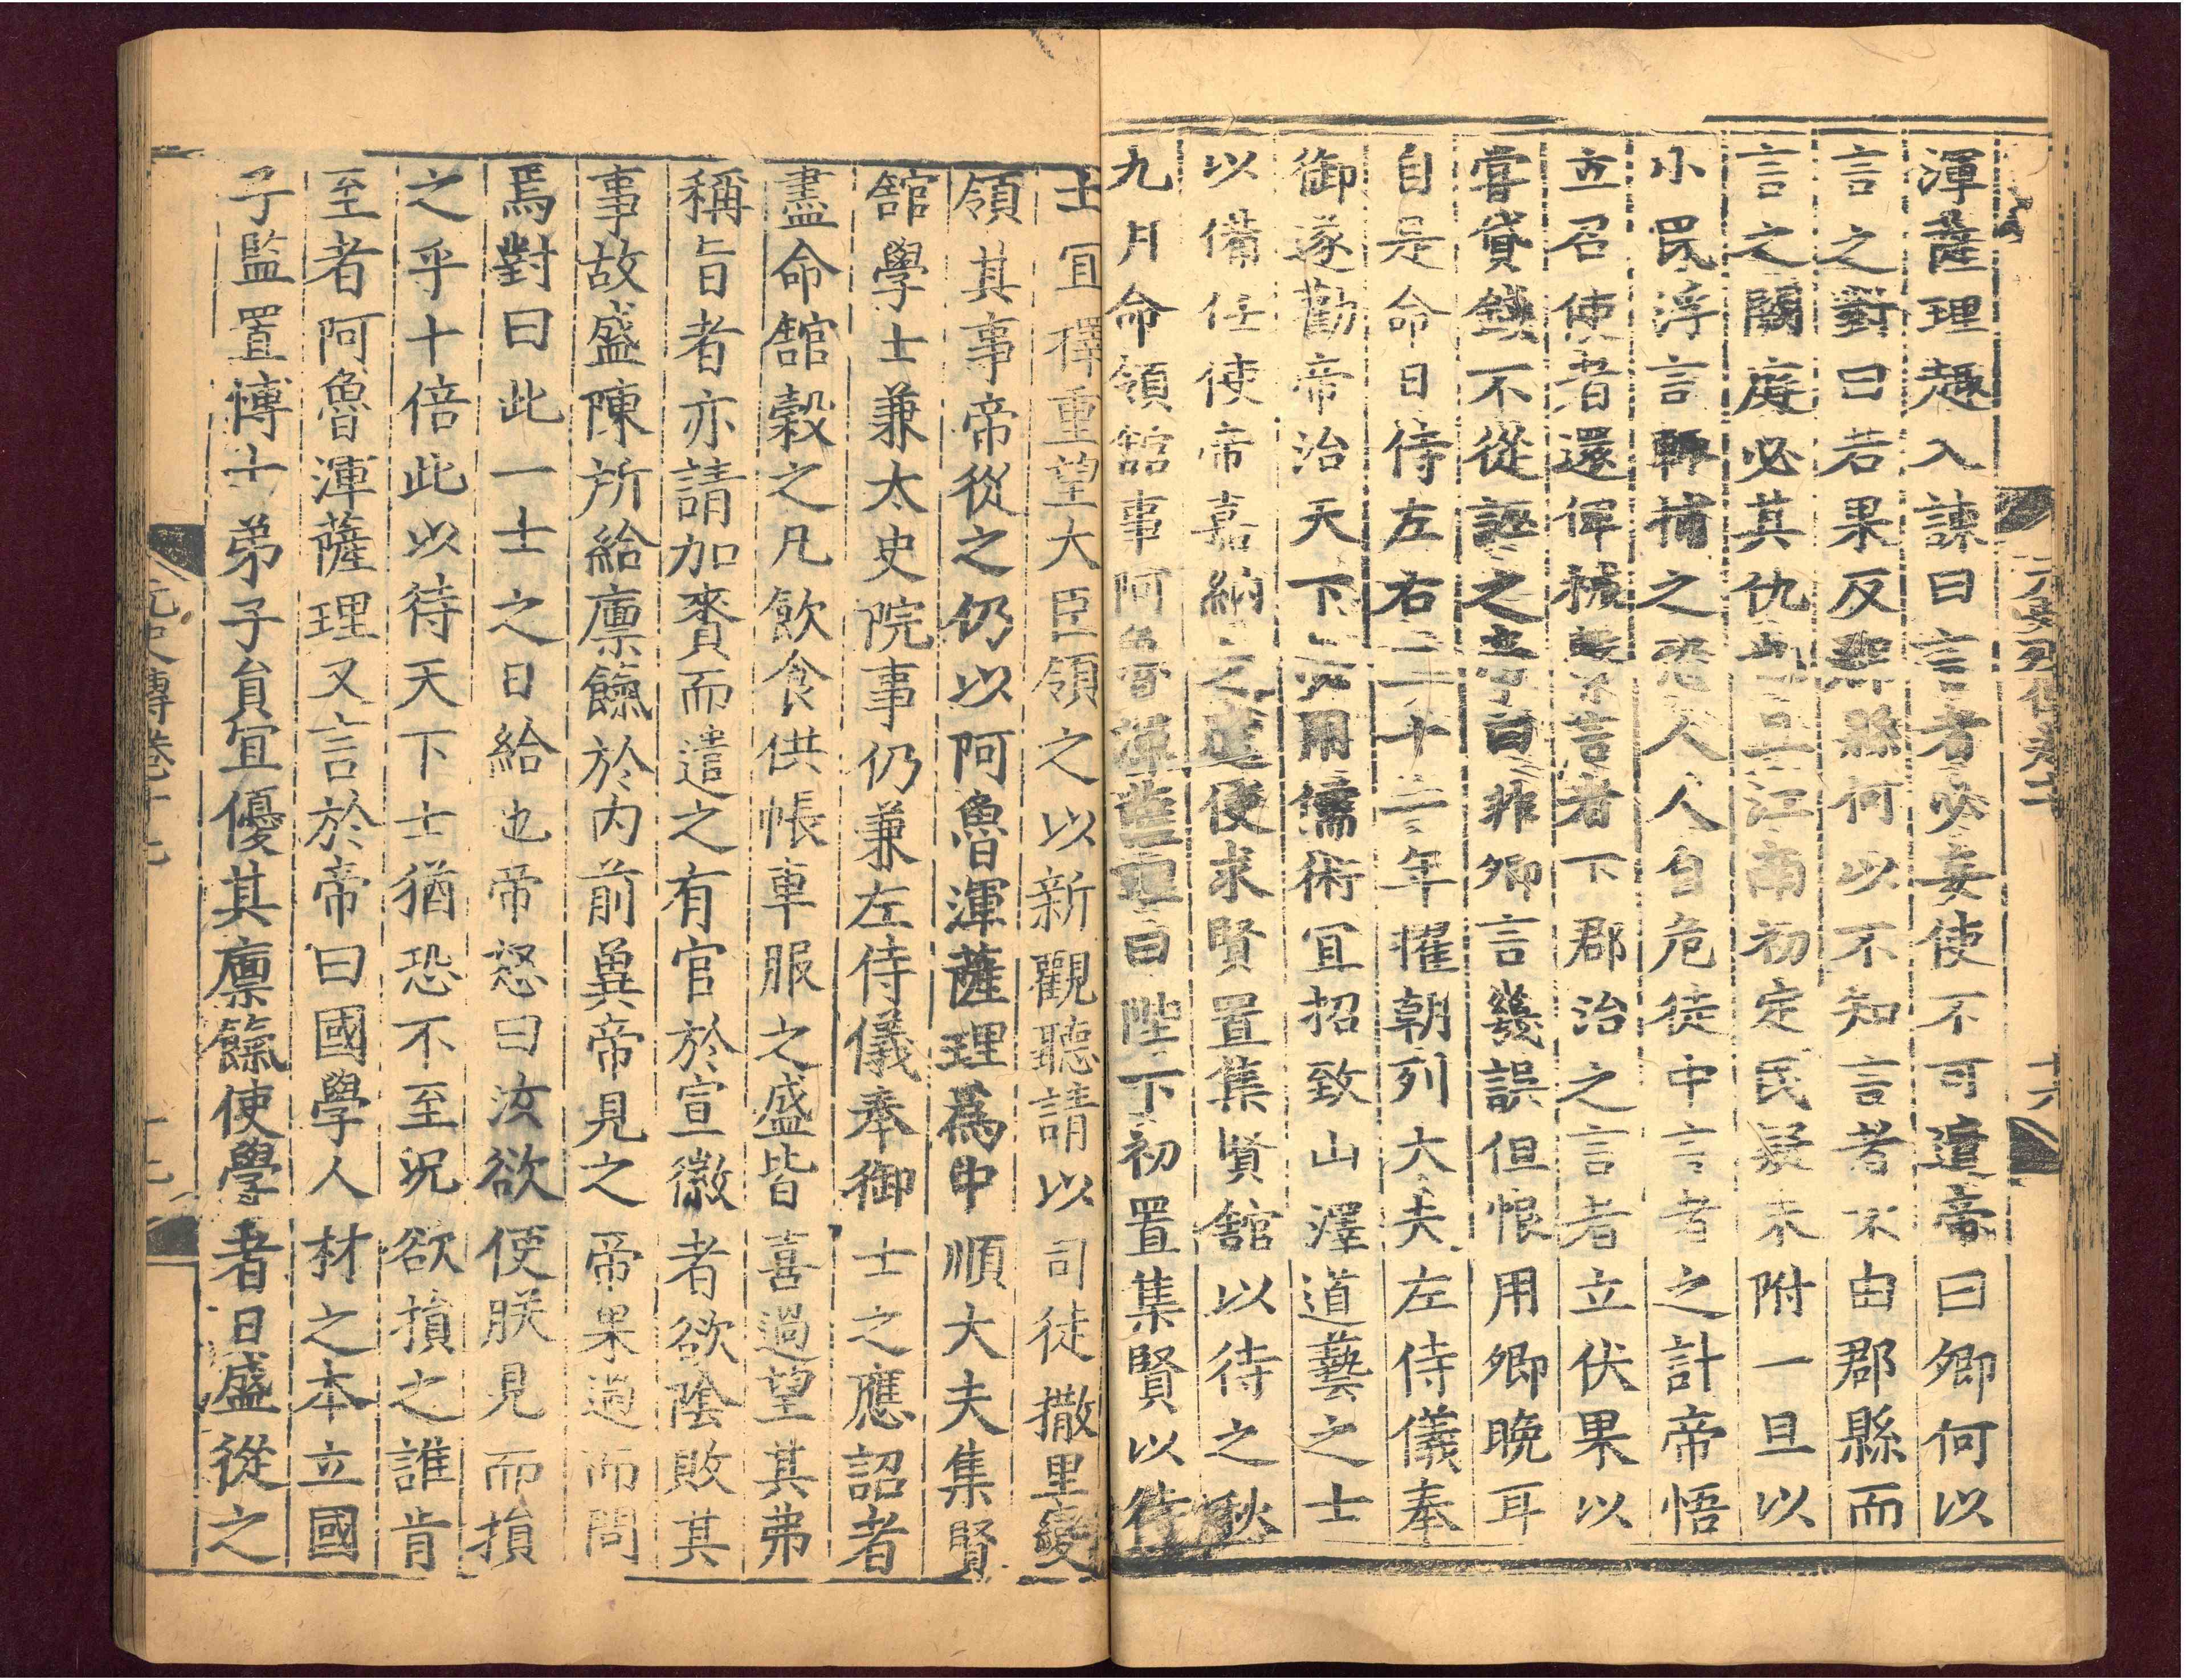 渾薩理趨入諫曰言者必妄使不可遣帝曰卿何以
言之對曰若果反郡縣何以不知言者不由郡縣而
言之闕庭必其仇也且江南初定民疑未附一旦以
小民浮言輒捕之恐人人自危徒中言者之計帝悟
立召使者還俾械繫言者下郡治之言者立伏果以
嘗貸錢不從誣之帝曰非卿言幾誤但恨用卿晚耳
自是命日侍左右二十二年擢朝列大夫左侍儀奉
御遂勸帝治天下必用儒術宜招致山澤道藝之士
以備任使帝嘉納之遣使求賢置集賢館以待之秋
九月命領館事阿魯渾薩理曰陛下初置集賢以待
士宜擇重望大臣領之以新觀聽請以司徒撒里蠻
領其事帝從之仍以阿魯渾薩理爲中順大夫集賢
館學士兼太史院事仍兼左侍儀奉御士之應詔者
盡命館穀之凡飲食供帳車服之盛皆喜過望其弗
稱旨者亦請加賚而遣之有官於宣徽者欲陰敗其
事故盛陳所給廩餼於內前冀帝見之帝果過而問
焉對曰此一士之日給也帝怒曰汝欲使朕見而損
之乎十倍此以待天下士猶恐不至況欲損之誰肯
至者阿魯渾薩理又言於帝曰國學人材之本立國
子監置博士弟子員宜優其廩餼使學者日盛從之
元史傳卷十七